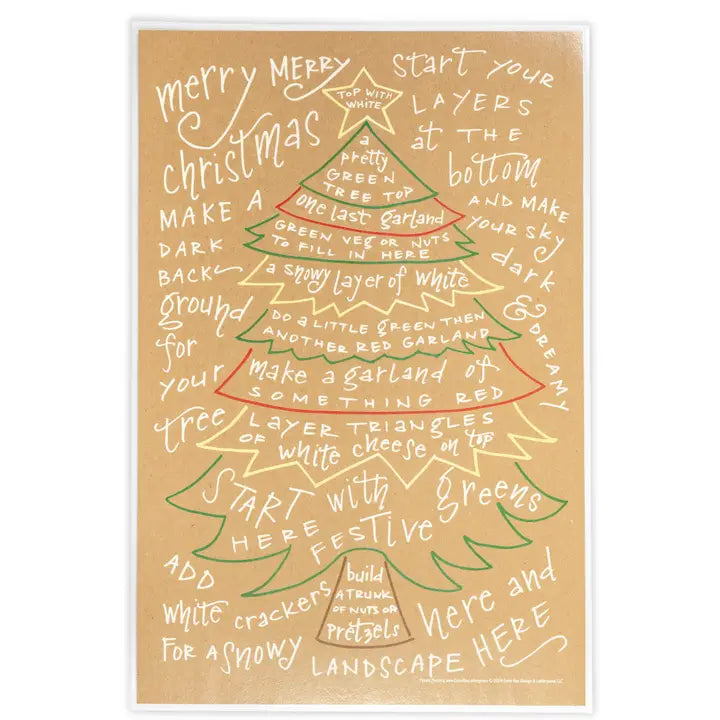 merry MERRY
christmas
MAKE A
DARK
BACK
ground
for
your
tree
start YOUR
LAYERS
at THE
bottom
AND MAKE
YOUR SKY
dark
& DREAMY
TOP WITH
WHITE
a
pretty
GREEN
TREE TOP
one last garland
GREEN VEG OR NUTS
TO FILL IN HERE
a snowy layer of white
DO a LITTLE green THEN
ANOTHER RED GARLAND
make a garland of
SOMETHING RED
LAYER TRIANGLES
OF white cheese on top
START with greens
HERE FESTIVE
build
A TRUNK
OF NUTS OR
Pretzels
ADD
white crackers
FOR A SNOWY
LANDSCAPE
here and
HERE